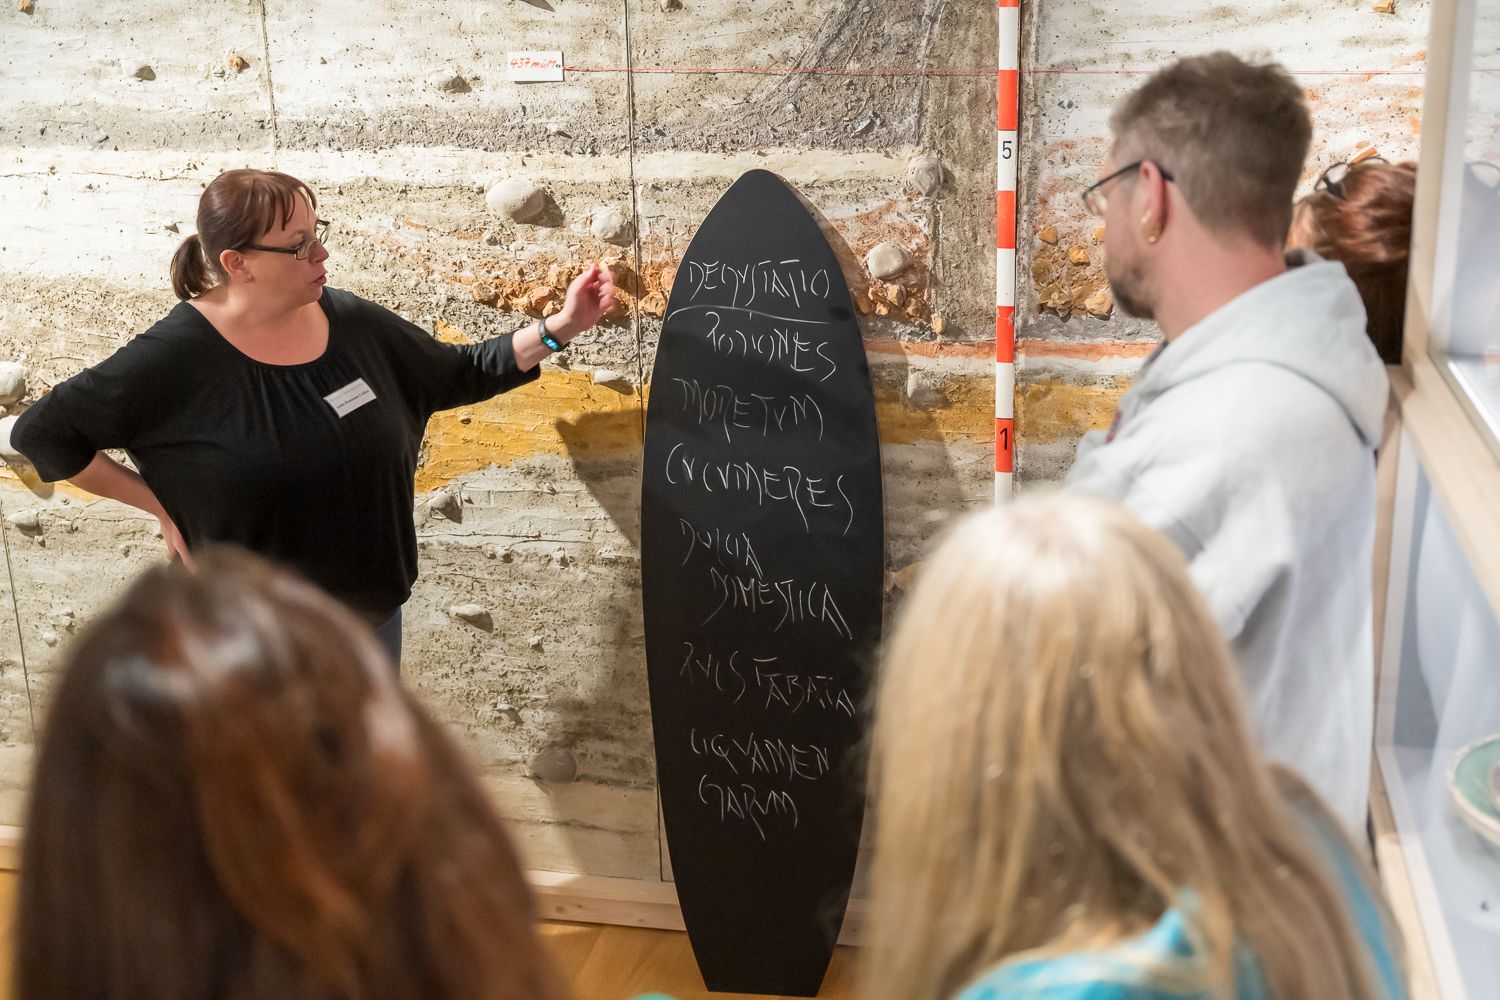 437 müM
5
1
DEGVSTATIO
POTIONES
MORETVM
CVCVMERES
DVLCIA
DOMESTICA
PVLS FABATA
LIQVAMEN
GARVM